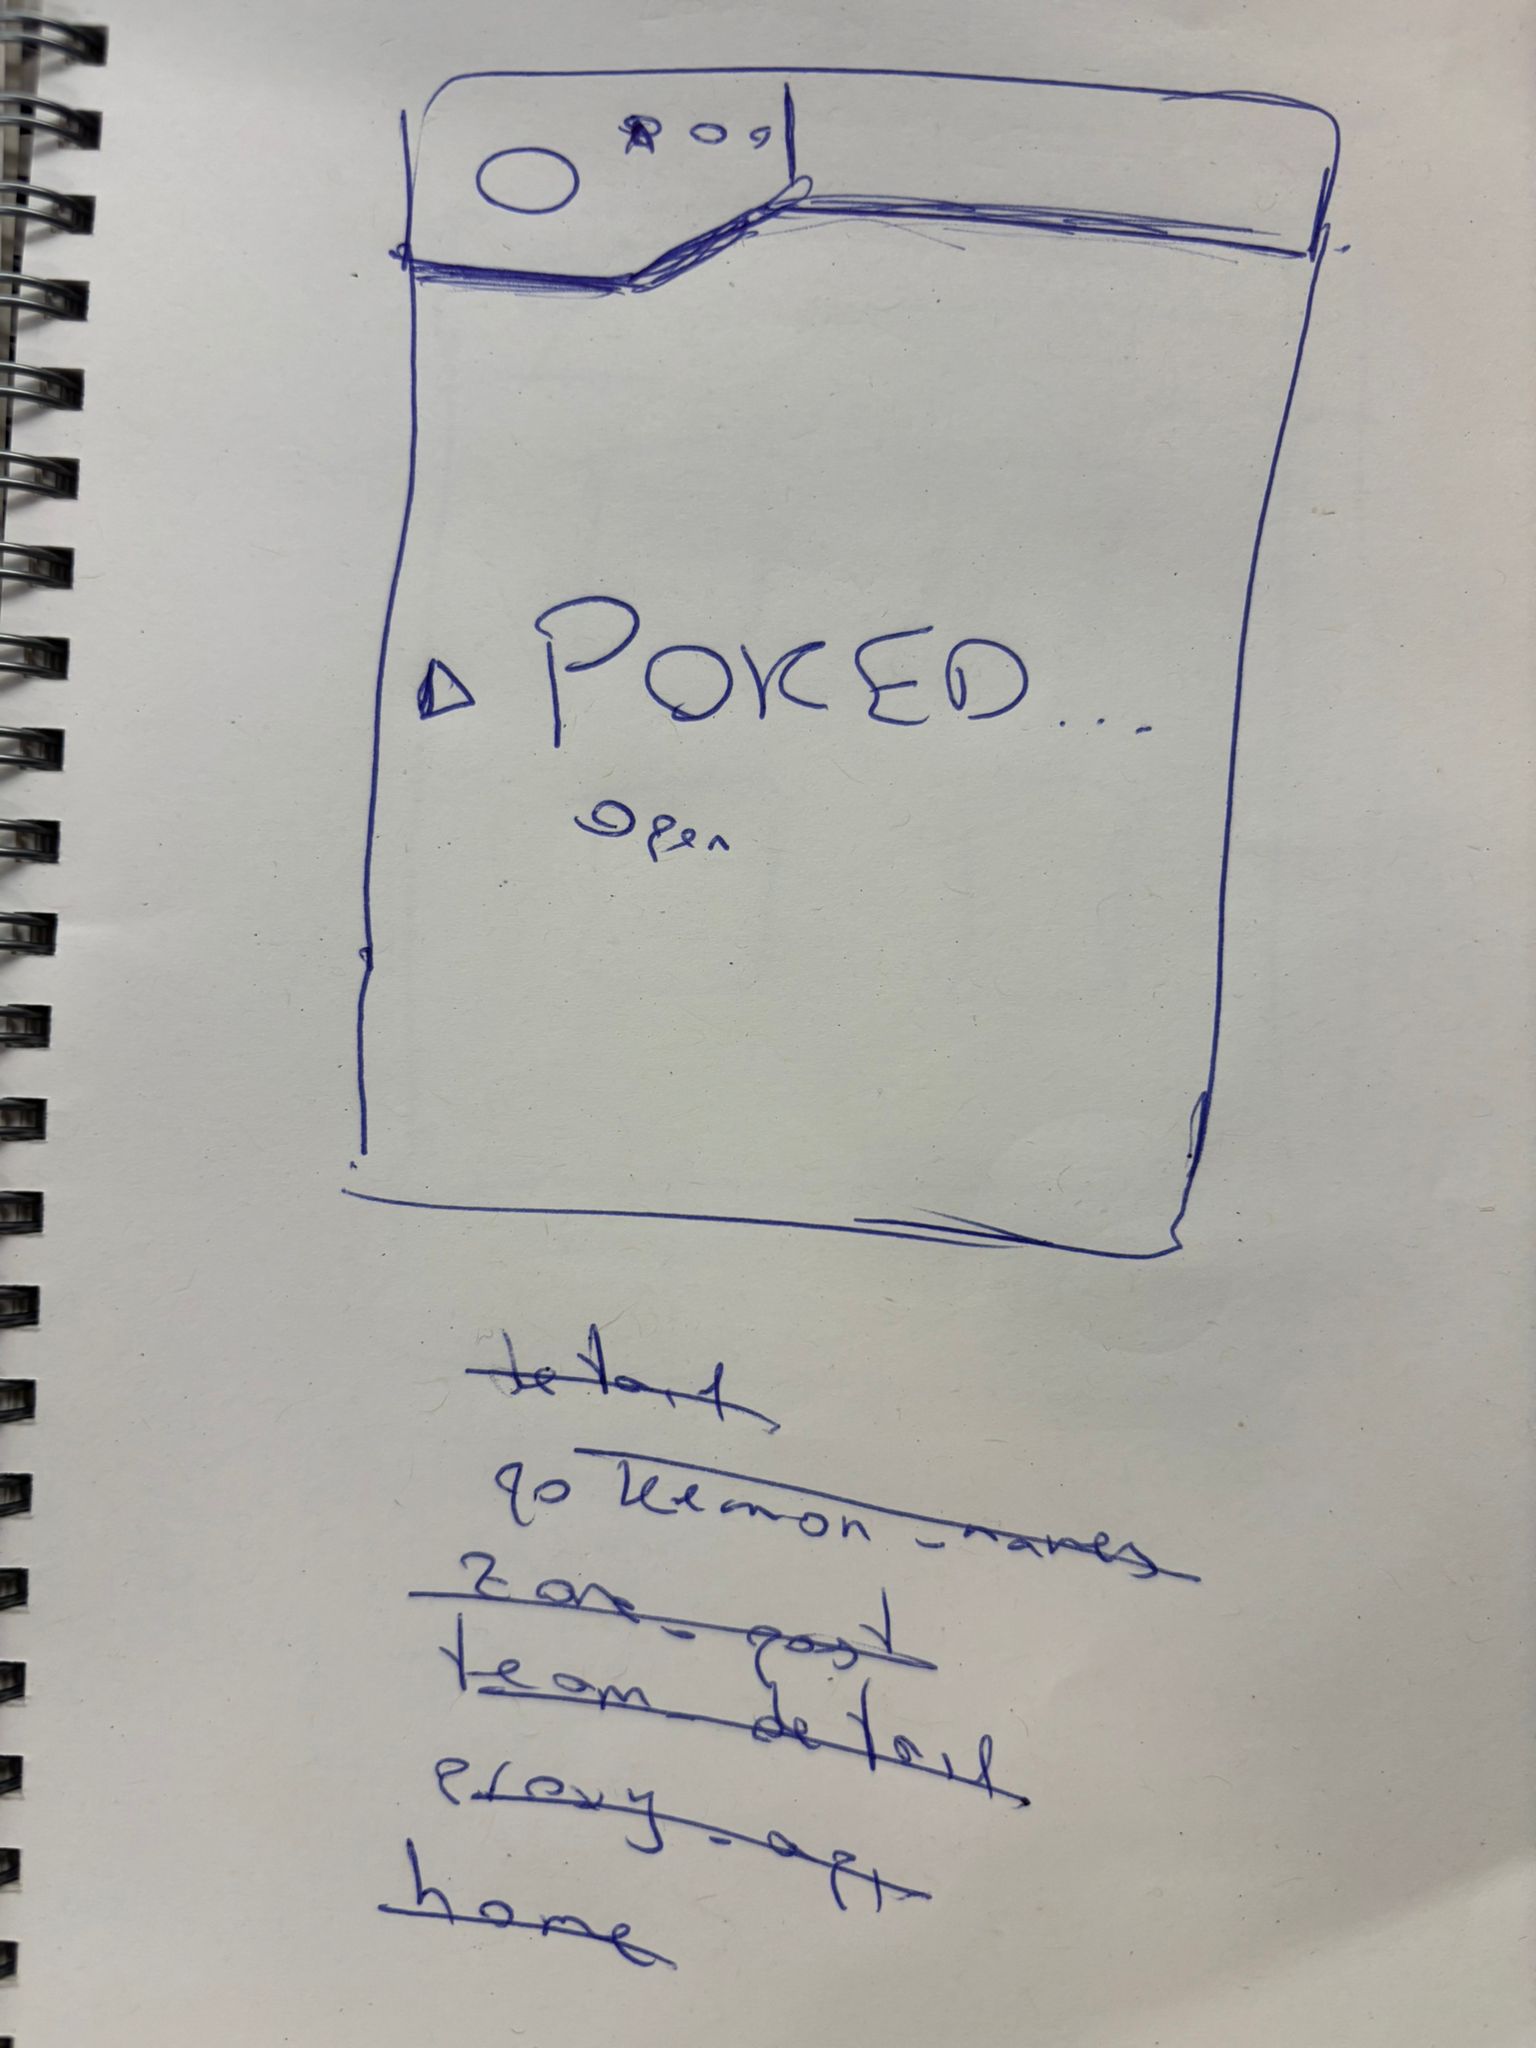 POKED...
Open
detail
pokemon_names
zone_post
team_detail
proxy_api
home